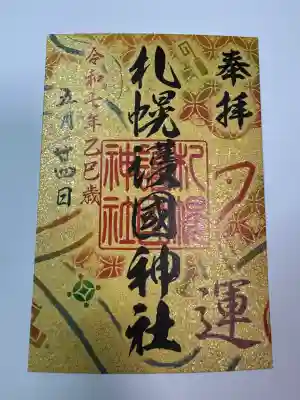 奉拝
札幌護國神社
令和七年乙巳歳
五月廿四日
運
札幌
護國
神社